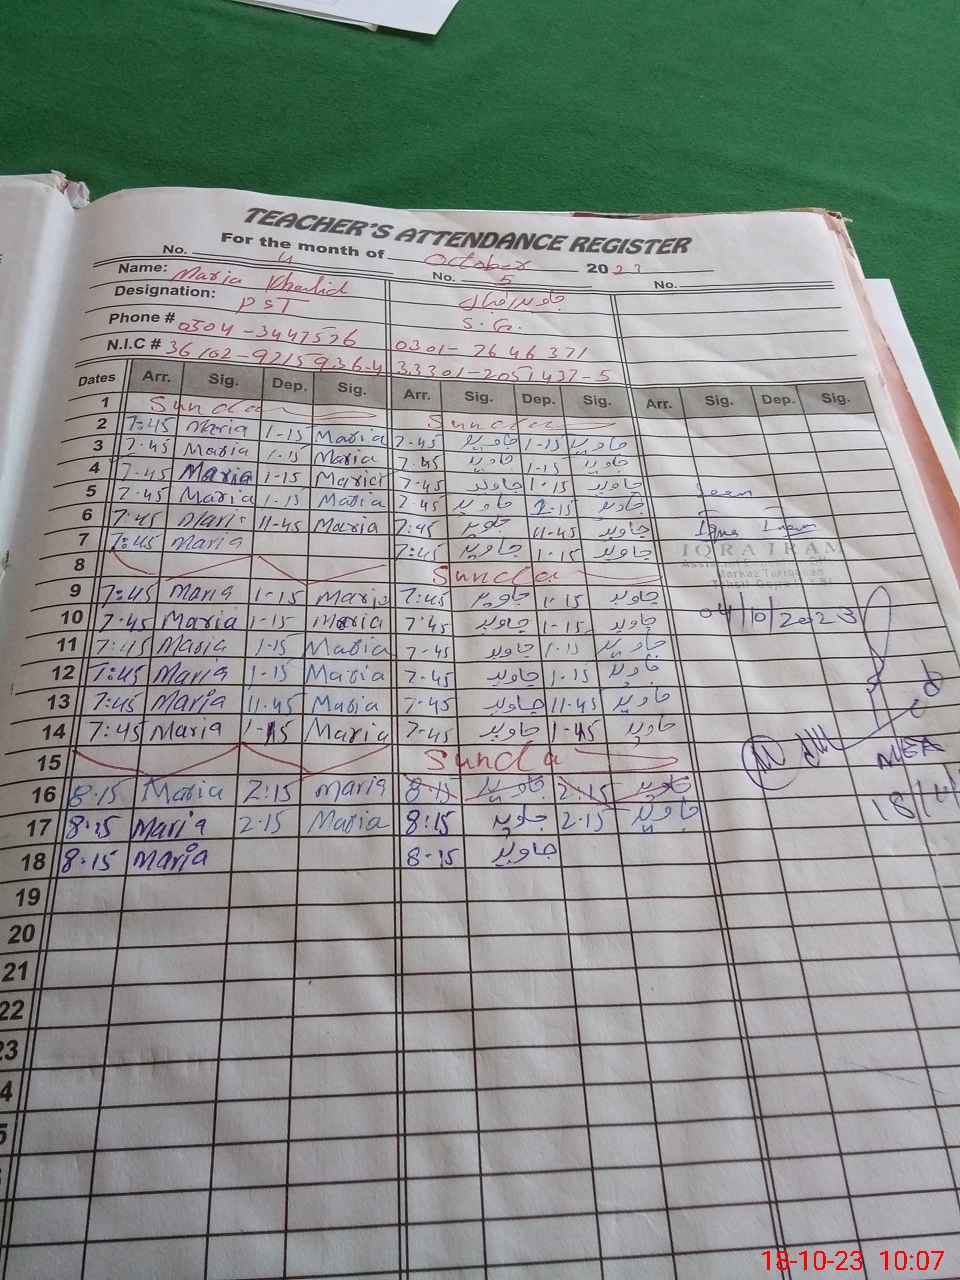 TEACHER'S ATTENDANCE REGISTER
For the month of October 2023
No. 4 No. 5 No.
Name: Maria Khalid جاوید اقبال
Designation: PST S.G.
Phone # 0304-3447576 0301-7646371
N.I.C # 36102-9215936-4 33301-2051437-5
Dates Arr. Sig. Dep. Sig. Arr. Sig. Dep. Sig. Arr. Sig. Dep. Sig.
1 Sunday Sunday
2 7:45 Maria 1-15 Maria 7-45 جاوید 1-15 جاوید
3 7-45 Maria 1-15 Maria 7-45 جاوید 1-15 جاوید
4 7-45 Maria 1-15 Maria 7-45 جاوید 1-15 جاوید
5 7-45 Maria 1-15 Maria 7-45 جاوید 1-15 جاوید Seen
6 7:45 Maria 11-45 Maria 7:45 جاوید 11-45 جاوید Iqra Iram
7 7:45 Maria 7:45 جاوید 1-15 جاوید IQRA IRAM
8 Sunda
9 7:45 Maria 1-15 Maria 7:45 جاوید 1-15 جاوید
10 7-45 Maria 1-15 Maria 7-45 جاوید 1-15 جاوید 04/10/2023
11 7:45 Maria 1-15 Maria 7-45 جاوید 1-15 جاوید
12 7:45 Maria 1-15 Maria 7-45 جاوید 1-15 جاوید
13 7:45 Maria 11-45 Maria 7-45 جاوید 11-45 جاوید
14 7:45 Maria 1-15 Maria 7-45 جاوید 1-45 جاوید
15 Sunda
MEA
16 8-15 Maria 2:15 Maria 8-15 جاوید 2:15 جاوید
17 8:15 Maria 2-15 Maria 8:15 جاوید 2-15 جاوید
18 8-15 Maria 8-15 جاوید
19
20
21
22
23
18-10-23 10:07